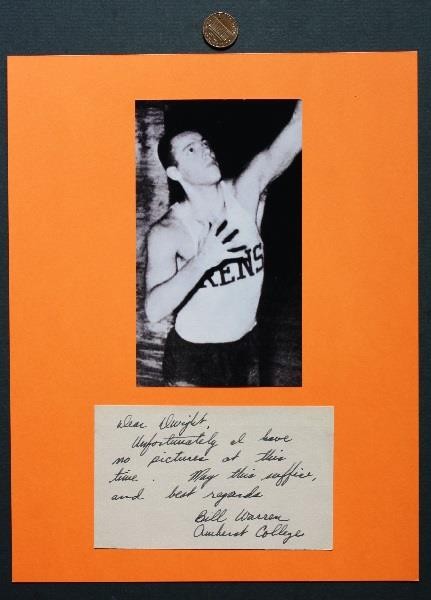 RENS
Dear Dwight,
Unfortunately I have
no pictures at this
time. May this suffice,
and best regards
Bill Warren
Amherst College